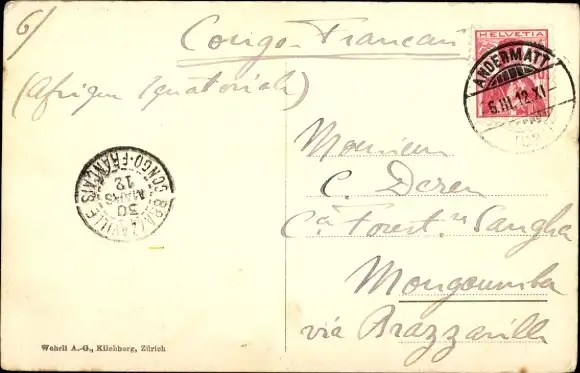 6)
Congo-Francais
(Afrique Equatoriale)
HELVETIA
ANDERMATT
6.III.12.XI
Monsieur
C. Deren
Cie Forest. re Sangha
Mongoumba
via Brazzaville
BRAZZAVILLE
CONGO-FRANÇAIS
30
MARS
12
Wehrli A.-G., Kilchberg, Zürich